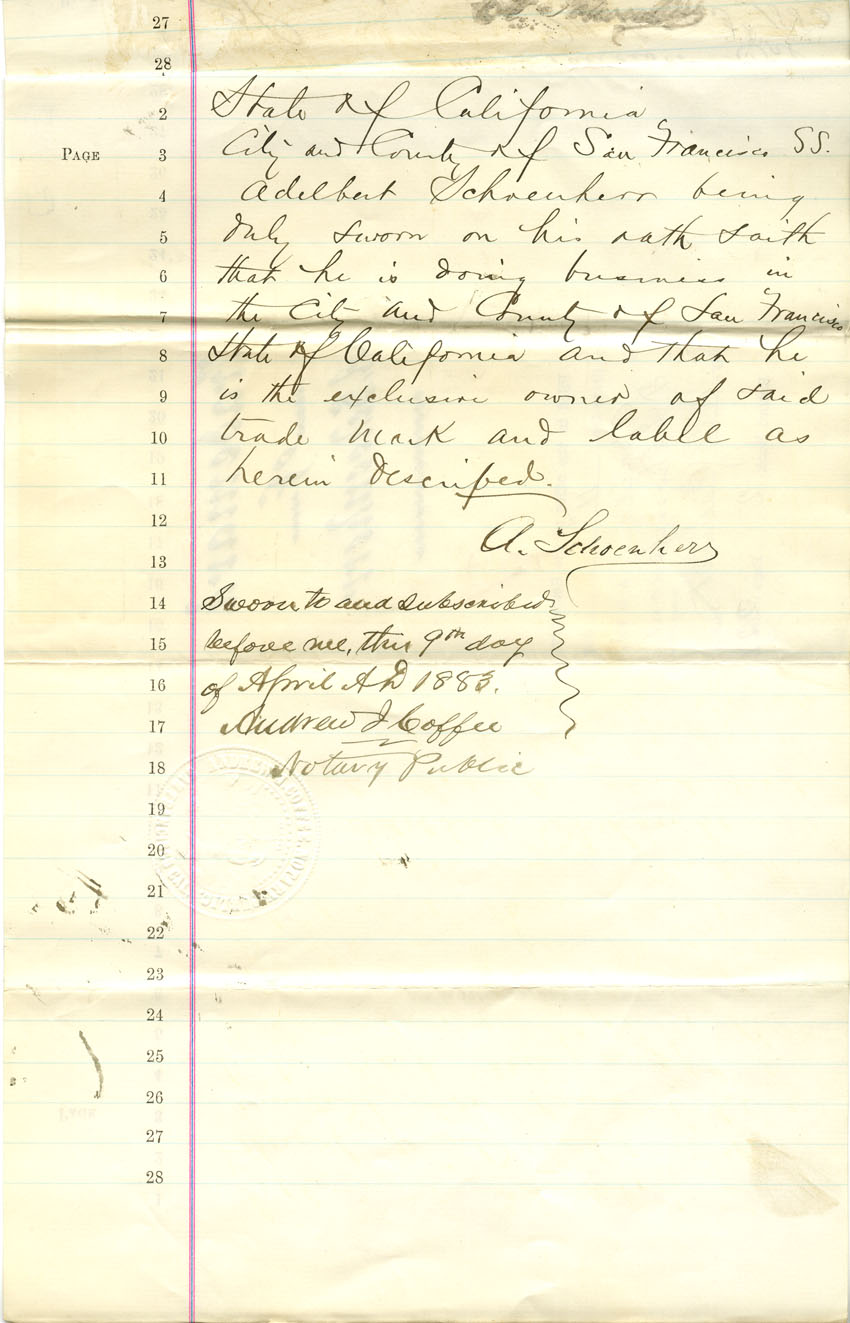 27
28
2 State of California
PAGE 3 City and County of San Francisco SS.
4 Adelbert Schoenherr being
5 duly sworn on his oath saith
6 that he is doing business in
7 the City and County of San Francisco
8 State of California and that he
9 is the exclusive owner of said
10 trade mark and label as
11 herein described.
12
A. Schoenherr
13
14 Sworn to and subscribed
15 before me, this 9th day
16 of April AD 1883.
17 Andrew J Coffee
18 Notary Public
19
20
21
22
23
24
25
26
27
28